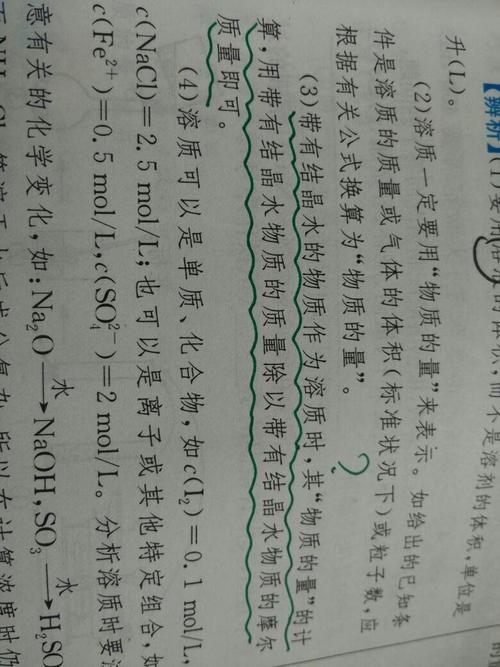 【辨析】(1)要用溶液的体积,而不是溶剂的体积,单位是
升(L)。
(2)溶质一定要用“物质的量”来表示。如给出的已知条
件是溶质的质量或气体的体积(标准状况下)或粒子数,应
根据有关公式换算为“物质的量”。
?
(3)带有结晶水的物质作为溶质时,其“物质的量”的计
算,用带有结晶水物质的质量除以带有结晶水物质的摩尔
质量即可。
(4)溶质可以是单质、化合物,如c(I₂)=0.1 mol/L,
c(NaCl)=2.5 mol/L;也可以是离子或其他特定组合,如
c(Fe²⁺)=0.5 mol/L,c(SO₄²⁻)=2 mol/L。分析溶质时要
意有关的化学变化,如:Na₂O 水→ NaOH,SO₃ 水→ H₂SO
所以在计算浓度时仍